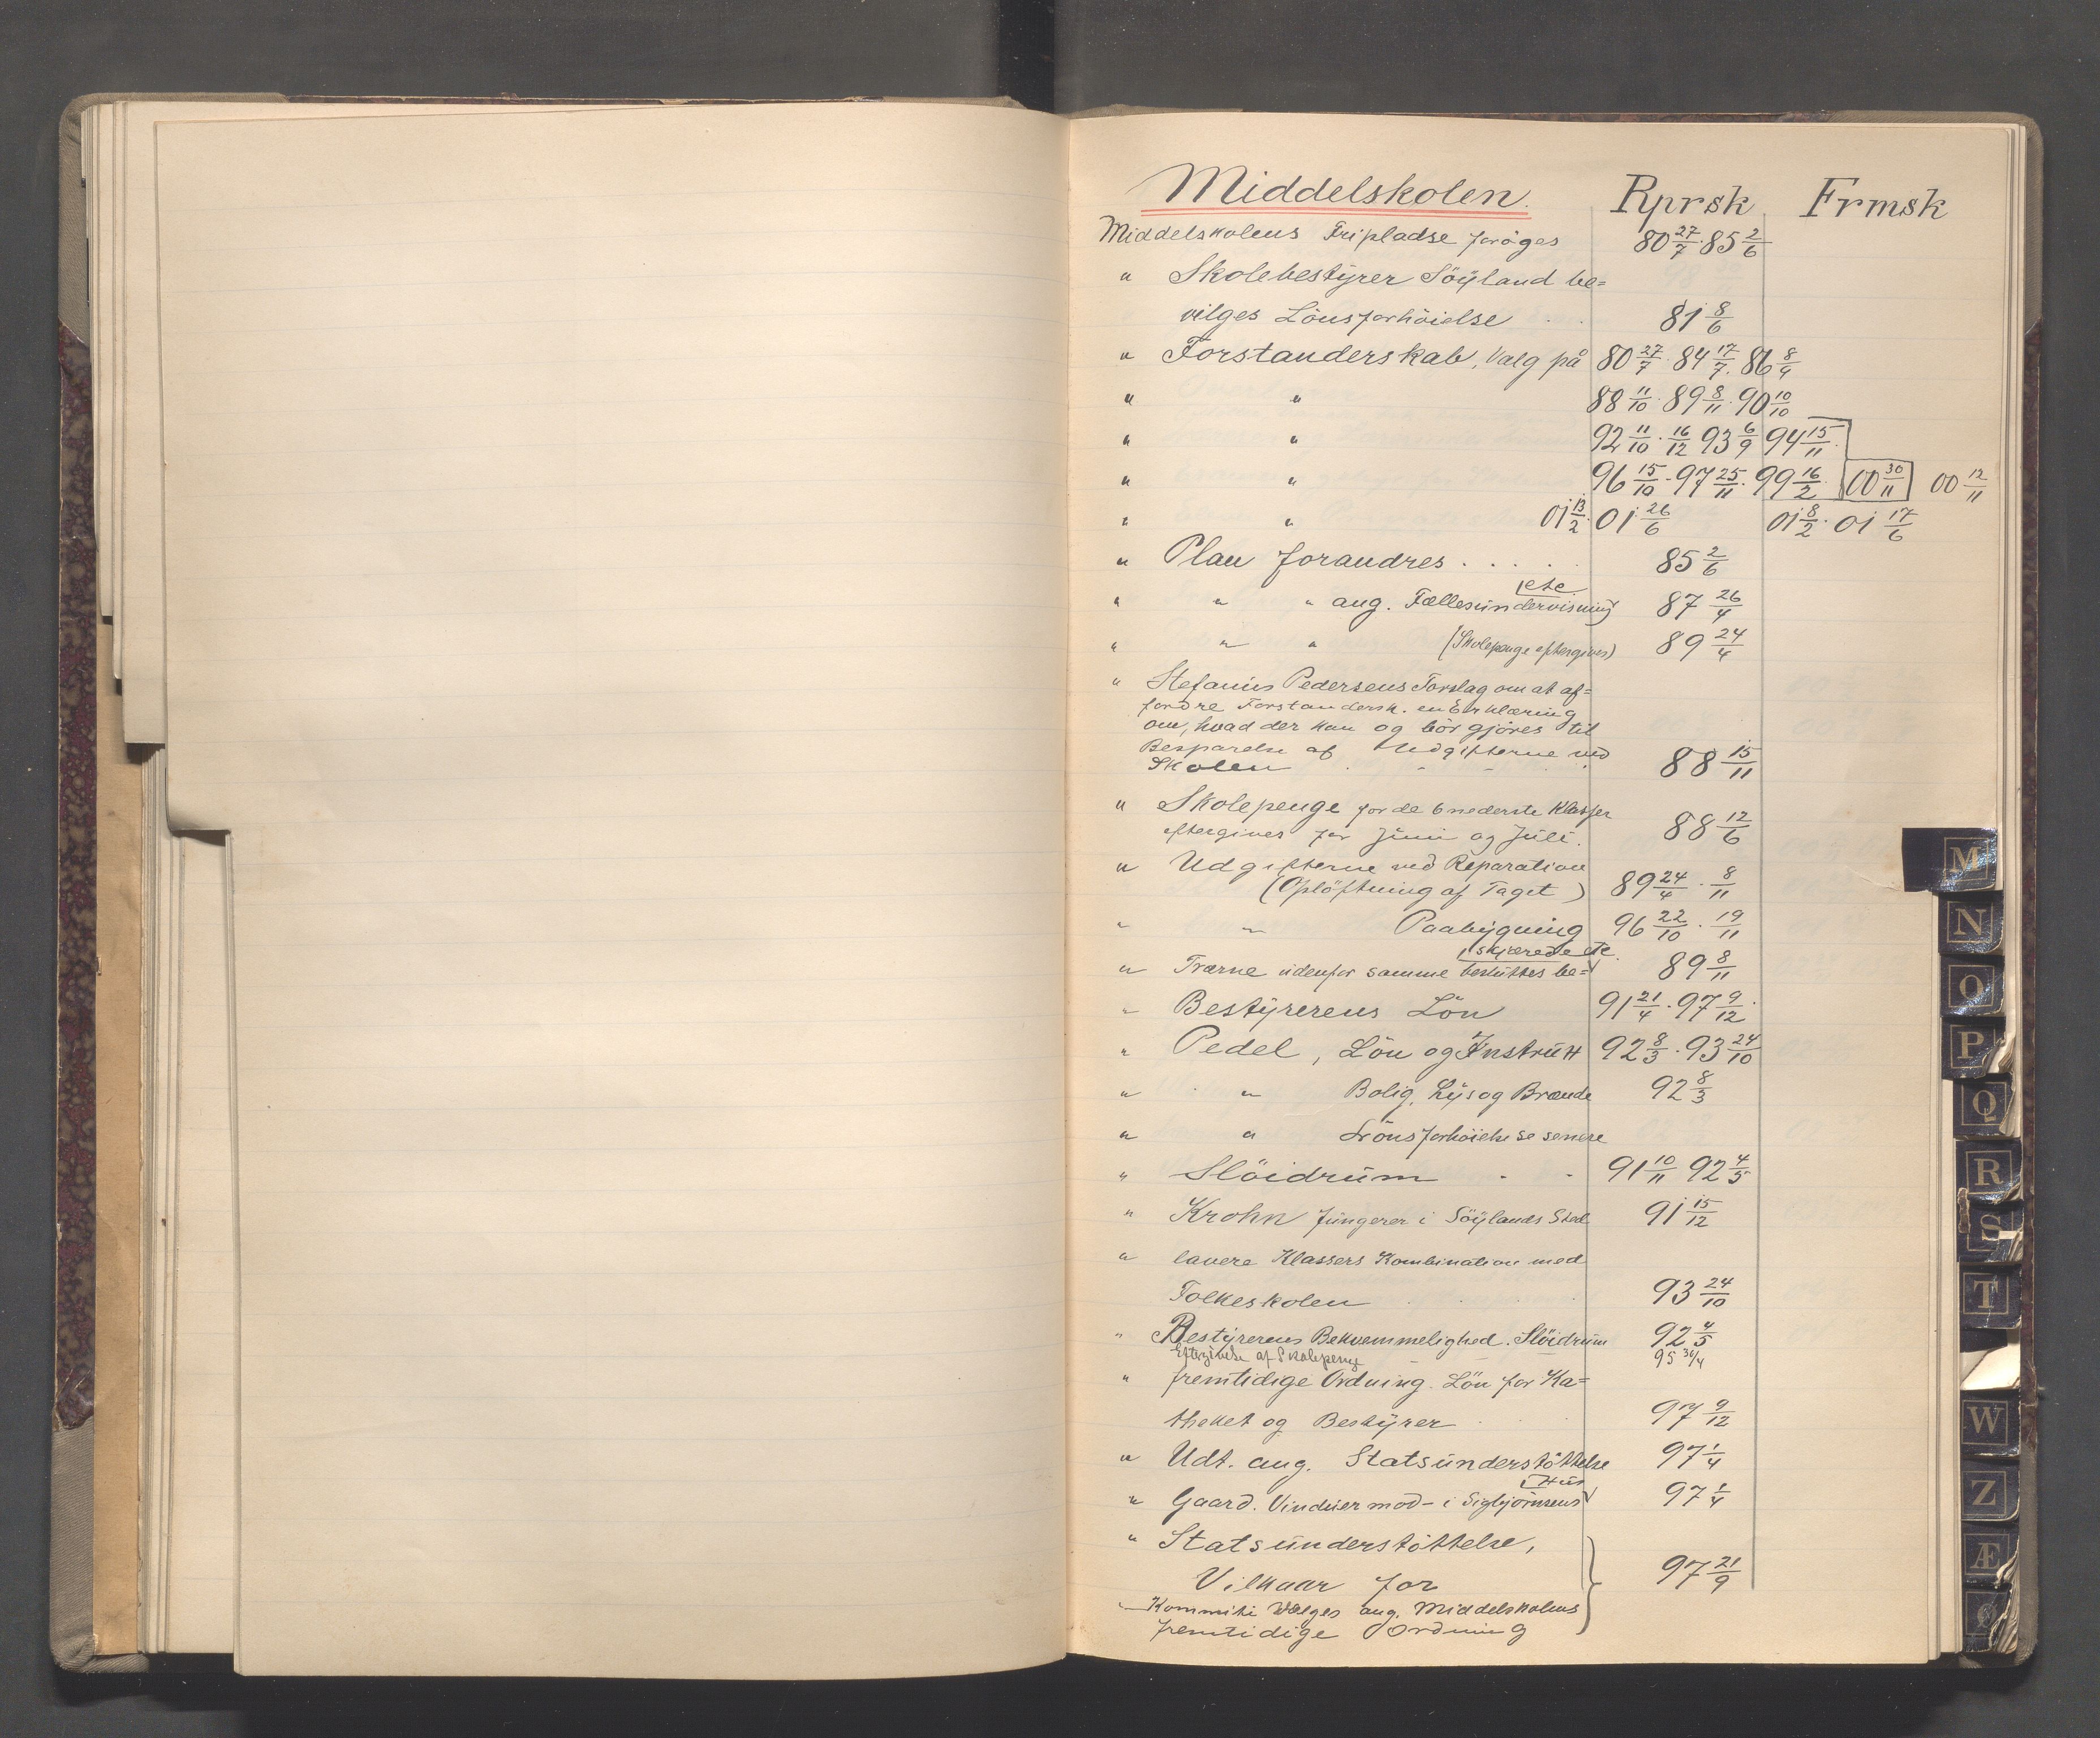 Middelskolen. Rprsk Frmsk
Middelskolens Fripladse forøges 80 27/7 · 85 2/6
" Skolebestyrer Söyland be=
vilges Lönsforhöielse . . 81 8/6
" Forstanderskab, Valg på 80 27/7 · 84 17/7 . 86 8/4
" " 88 11/10 · 89 8/11 · 90 10/10
" " 92 11/10 · 16/12 93 6/9 94 15/11 .
" " 96 15/10 · 97 25/11 · 99 16/2 . 00 30/11 00 12/11
" " 01 13/2 · 01 26/6 01 8/2 · 01 17/6
" Plan forandres . . . . 85 2/6
etc.
" " " ang. Fællesundervisning 87 26/4
" " " (Skolepenge eftergives) 89 24/4
" Stefanus Pedersens Forslag om at af=
fordre Forstandersk. en Erklæring
om, hvad der kan og bör gjöres til
Besparelse af Udgifterne ved
Skolen . - - . 88 15/11
" Skolepenge for de 6 nederste Klasser
eftergives for Juni og Juli. 88 12/6
" Udgifterne ved Reparation
(Oplöftning af Taget) 89 24/4 · 8/11
" " Paabygning 96 22/10 · 19/11
skjærede etc.
" Trærne udenfor samme besluttes be= 89 8/11
" Bestyrerens Lön 91 21/4 · 97 9/12 ·
" Pedel, Lön og Instrux 92 8/3 · 93 24/10
" " Bolig, Lys og Brænde 92 8/3
" " Lönsforhöielse se senere
" Slöidrum - - 91 10/11 92 4/5
" Krohn fungerer i Söylands Sted 91 15/12
" lavere Klassers Kombination med
Folkeskolen . . . 93 24/10
" Bestyrerens Bekvemmelighed. Slöidrum 92 4/5
Eftergivelse af Skolepenge 95 30/4
" fremtidige Ordning. Lön for Ka=
theket og Bestyrer . . . 97 9/12
" Udt. ang. Statsunderstöttelse 97 1/4
Hus
" Gaard. Vinduer mod - i Sigbjörnsens 97 1/4
" Statsunderstöttelse,
Vilkaar for 97 21/9
" Kommite vælges ang. Middelskolens
fremtidige Ordning
M
N
O
P
Q
R
S
T
W
Z
Æ
Ø